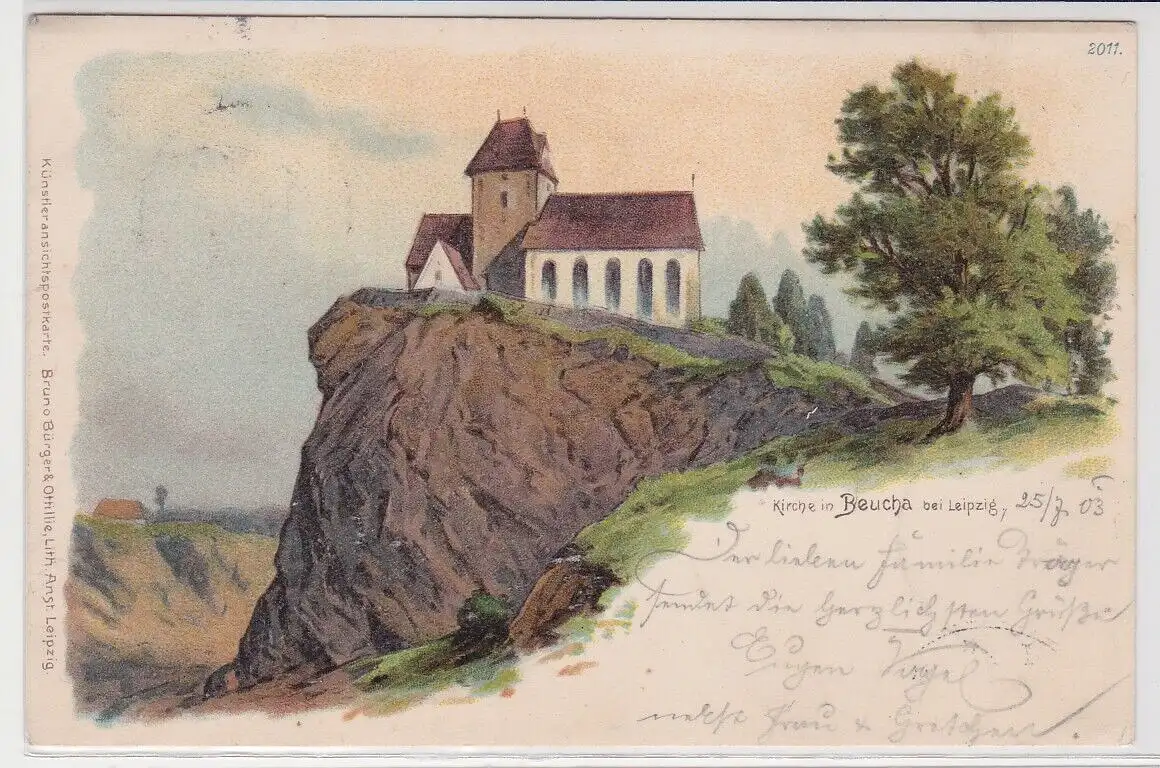 2011.
Künstleransichtspostkarte. Bruno Bürger & Ottillie, Lith. Anst. Leipzig.
Kirche in Beucha bei Leipzig, 25/7. 03
Der lieben Familie
sendet die herzlichsten Grüße
Eugen Vogel
nebst Frau & Gretchen